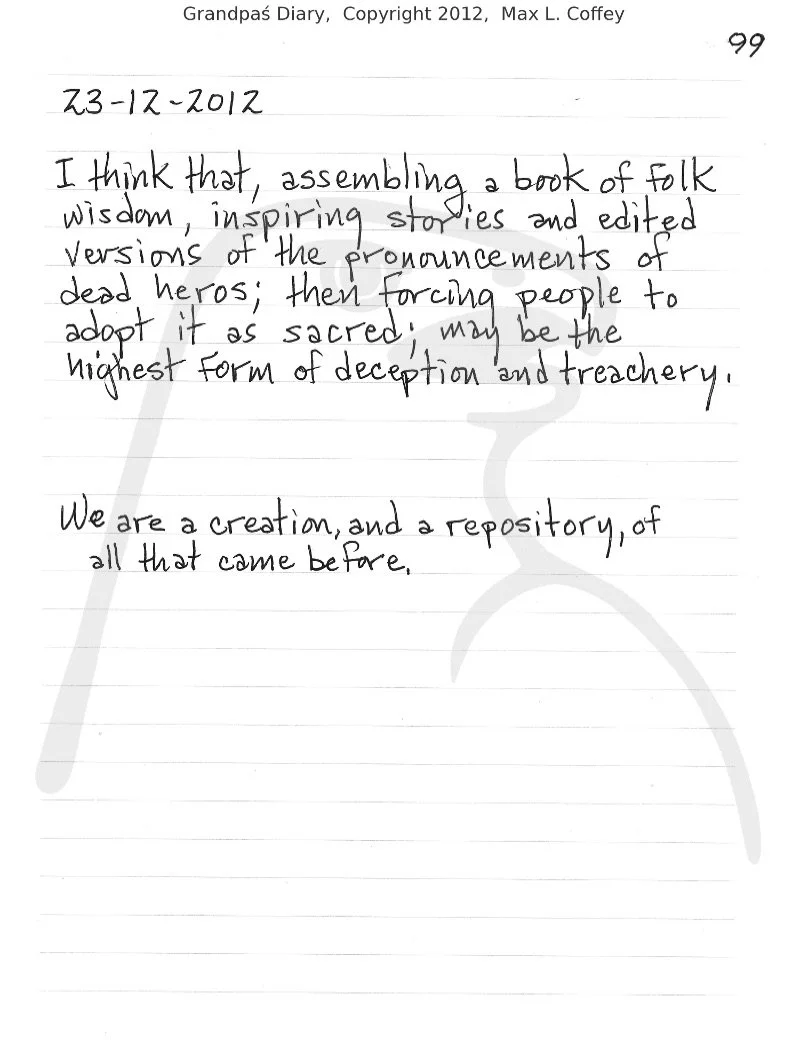 Grandpaś Diary, Copyright 2012, Max L. Coffey
99
23-12-2012
I think that, assembling a book of folk
wisdom, inspiring stories and edited
versions of the pronouncements of
dead heros; then forcing people to
adopt it as sacred; may be the
highest form of deception and treachery.
We are a creation, and a repository, of
all that came before.